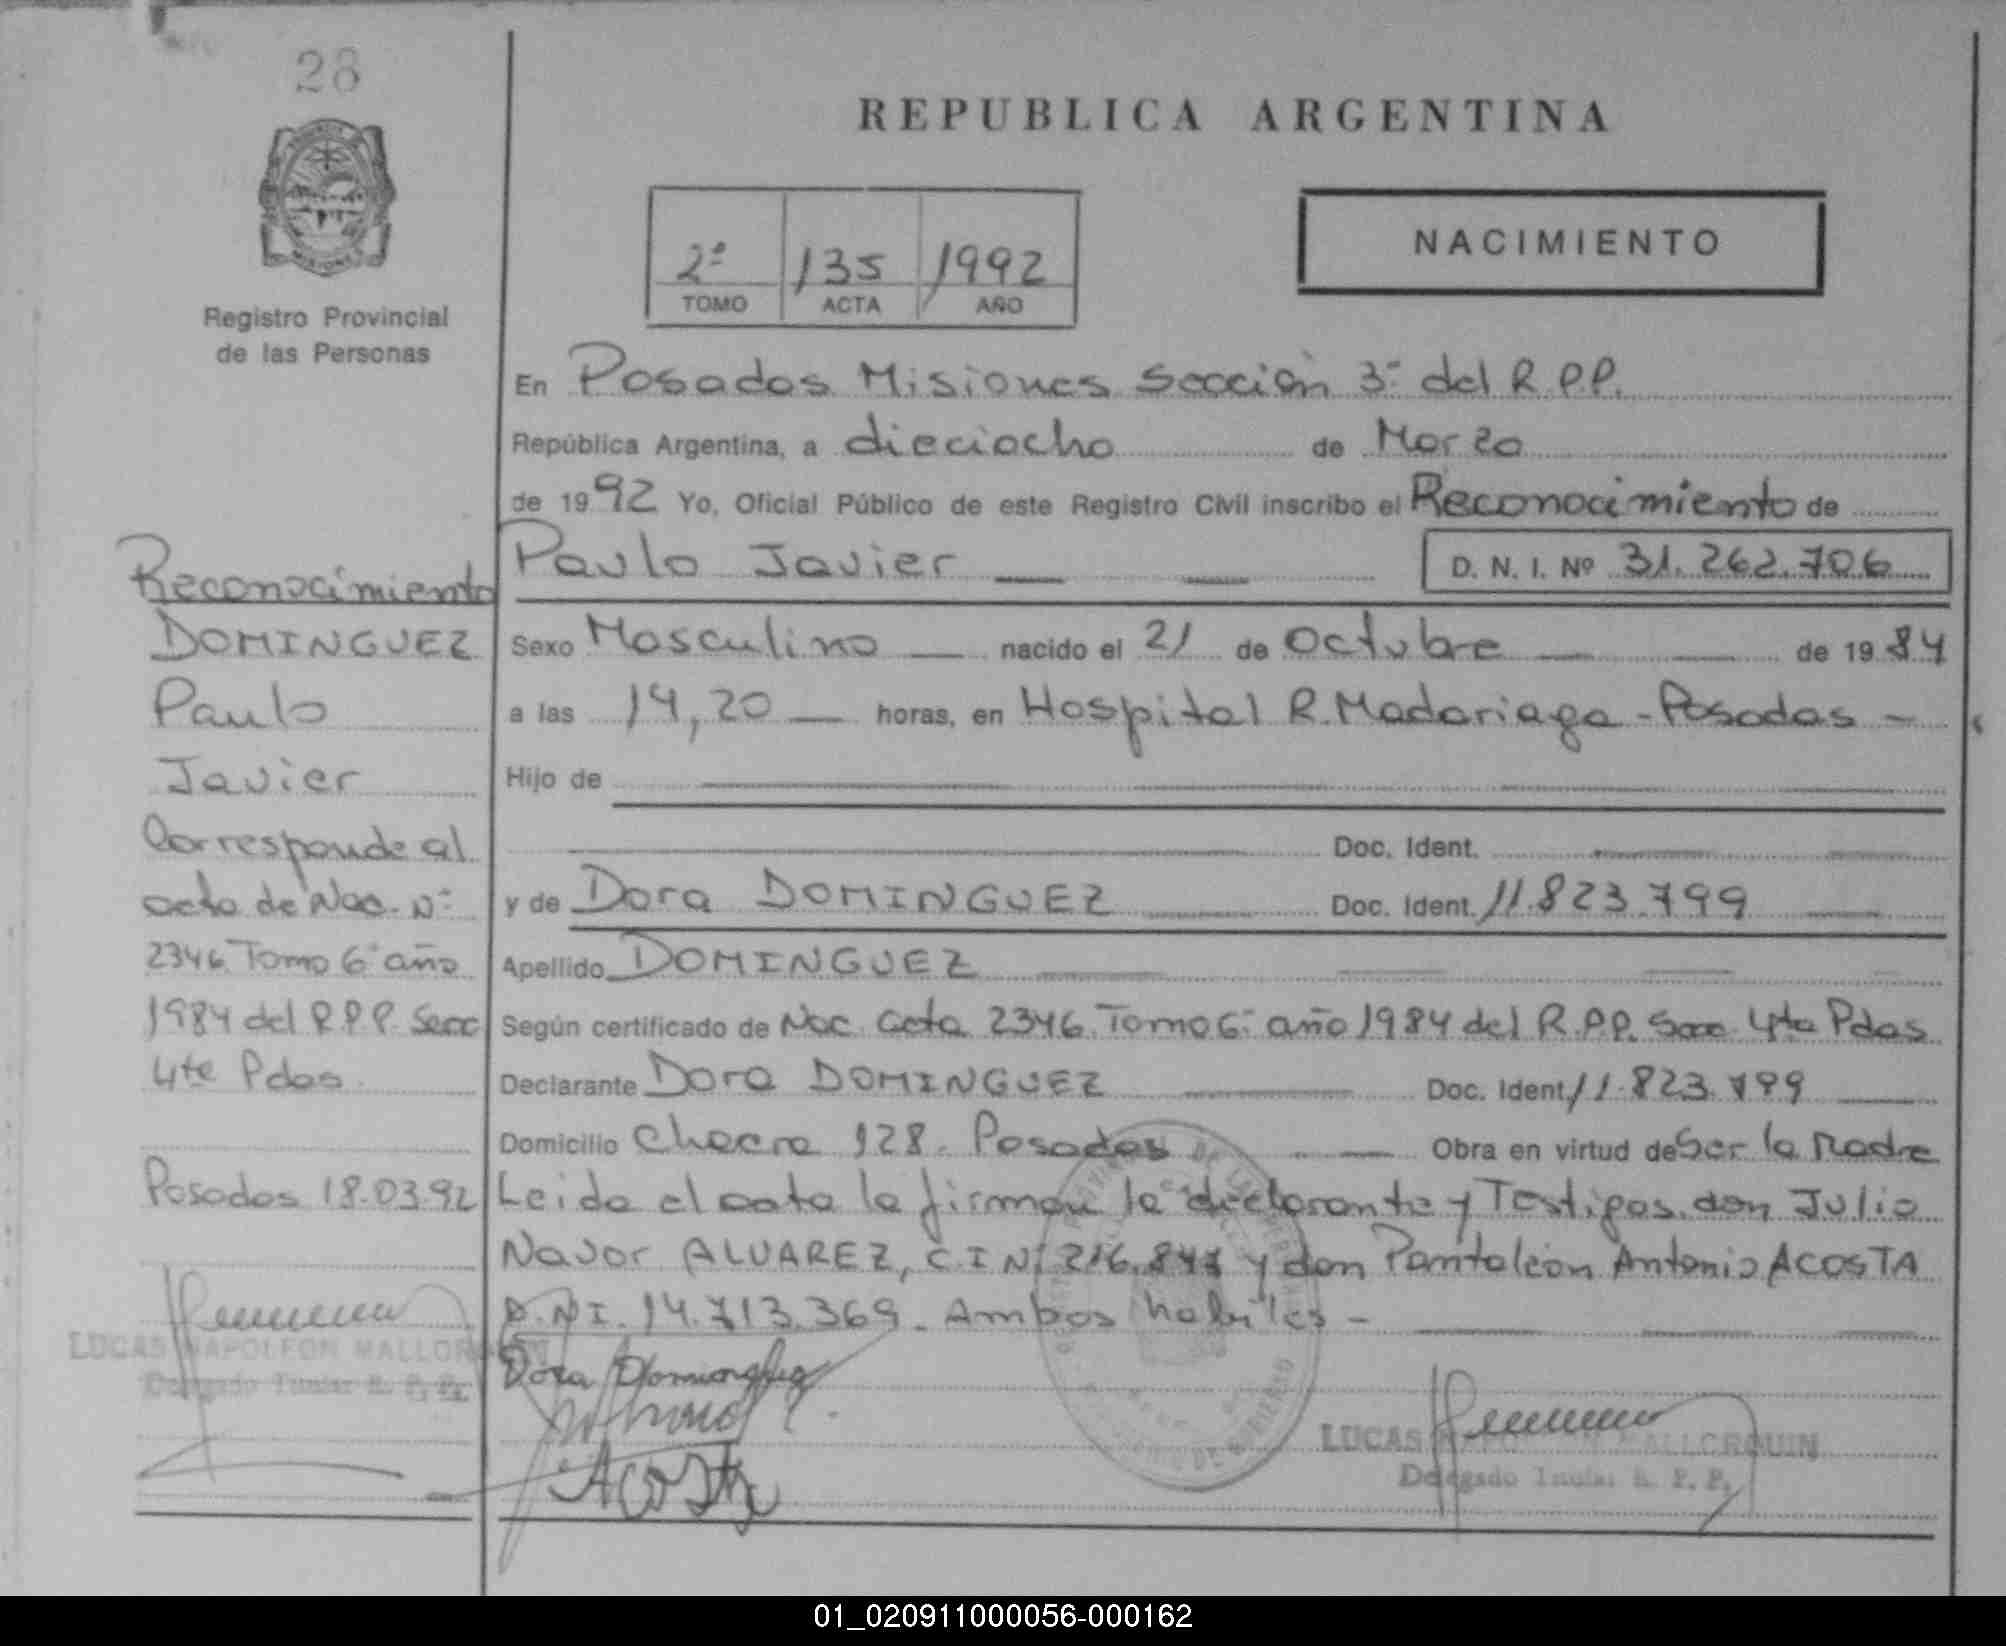 28
REPUBLICA ARGENTINA
2º 135 1992
TOMO ACTA AÑO
NACIMIENTO
Registro Provincial
de las Personas
En Posadas Misiones Sección 3º del R.P.P.
República Argentina, a dieciocho de Marzo
de 1992 Yo, Oficial Público de este Registro Civil inscribo el Reconocimiento de
Paulo Javier D. N. I. Nº 31.262.706
Sexo Masculino nacido el 21 de Octubre de 1984
a las 14,20 horas, en Hospital R. Madariaga - Posadas -
Hijo de
Doc. Ident.
y de Dora DOMINGUEZ Doc. Ident. 11.823.799
Apellido DOMINGUEZ
Según certificado de Nac. acta 2346 Tomo 6º año 1984 del R.P.P. Secc 4ta Pdas
Declarante Dora DOMINGUEZ Doc. Ident 11.823.799
Domicilio Chacra 128. Posadas Obra en virtud de Ser la Madre
Leida el acta la firman la declarante y Testigos don Julio
Navor ALVAREZ, C.I Nº y don Pantaleón Antonio ACOSTA
D.N.I. 14.713.369. Ambos habiles -
Dora Dominguez
Acosta
LUCAS NAPOLEON MALLORQUIN
Delegado Titular R. P. P.
Reconocimiento
DOMINGUEZ
Paulo
Javier
Corresponde al
acta de Nac. Nº
2346 Tomo 6º año
1984 del R.P.P. Secc
4ta Pdas
Posadas 18.03.92
LUCAS NAPOLEON MALLORQUIN
Delegado Titular R. P. P.
01_020911000056-000162